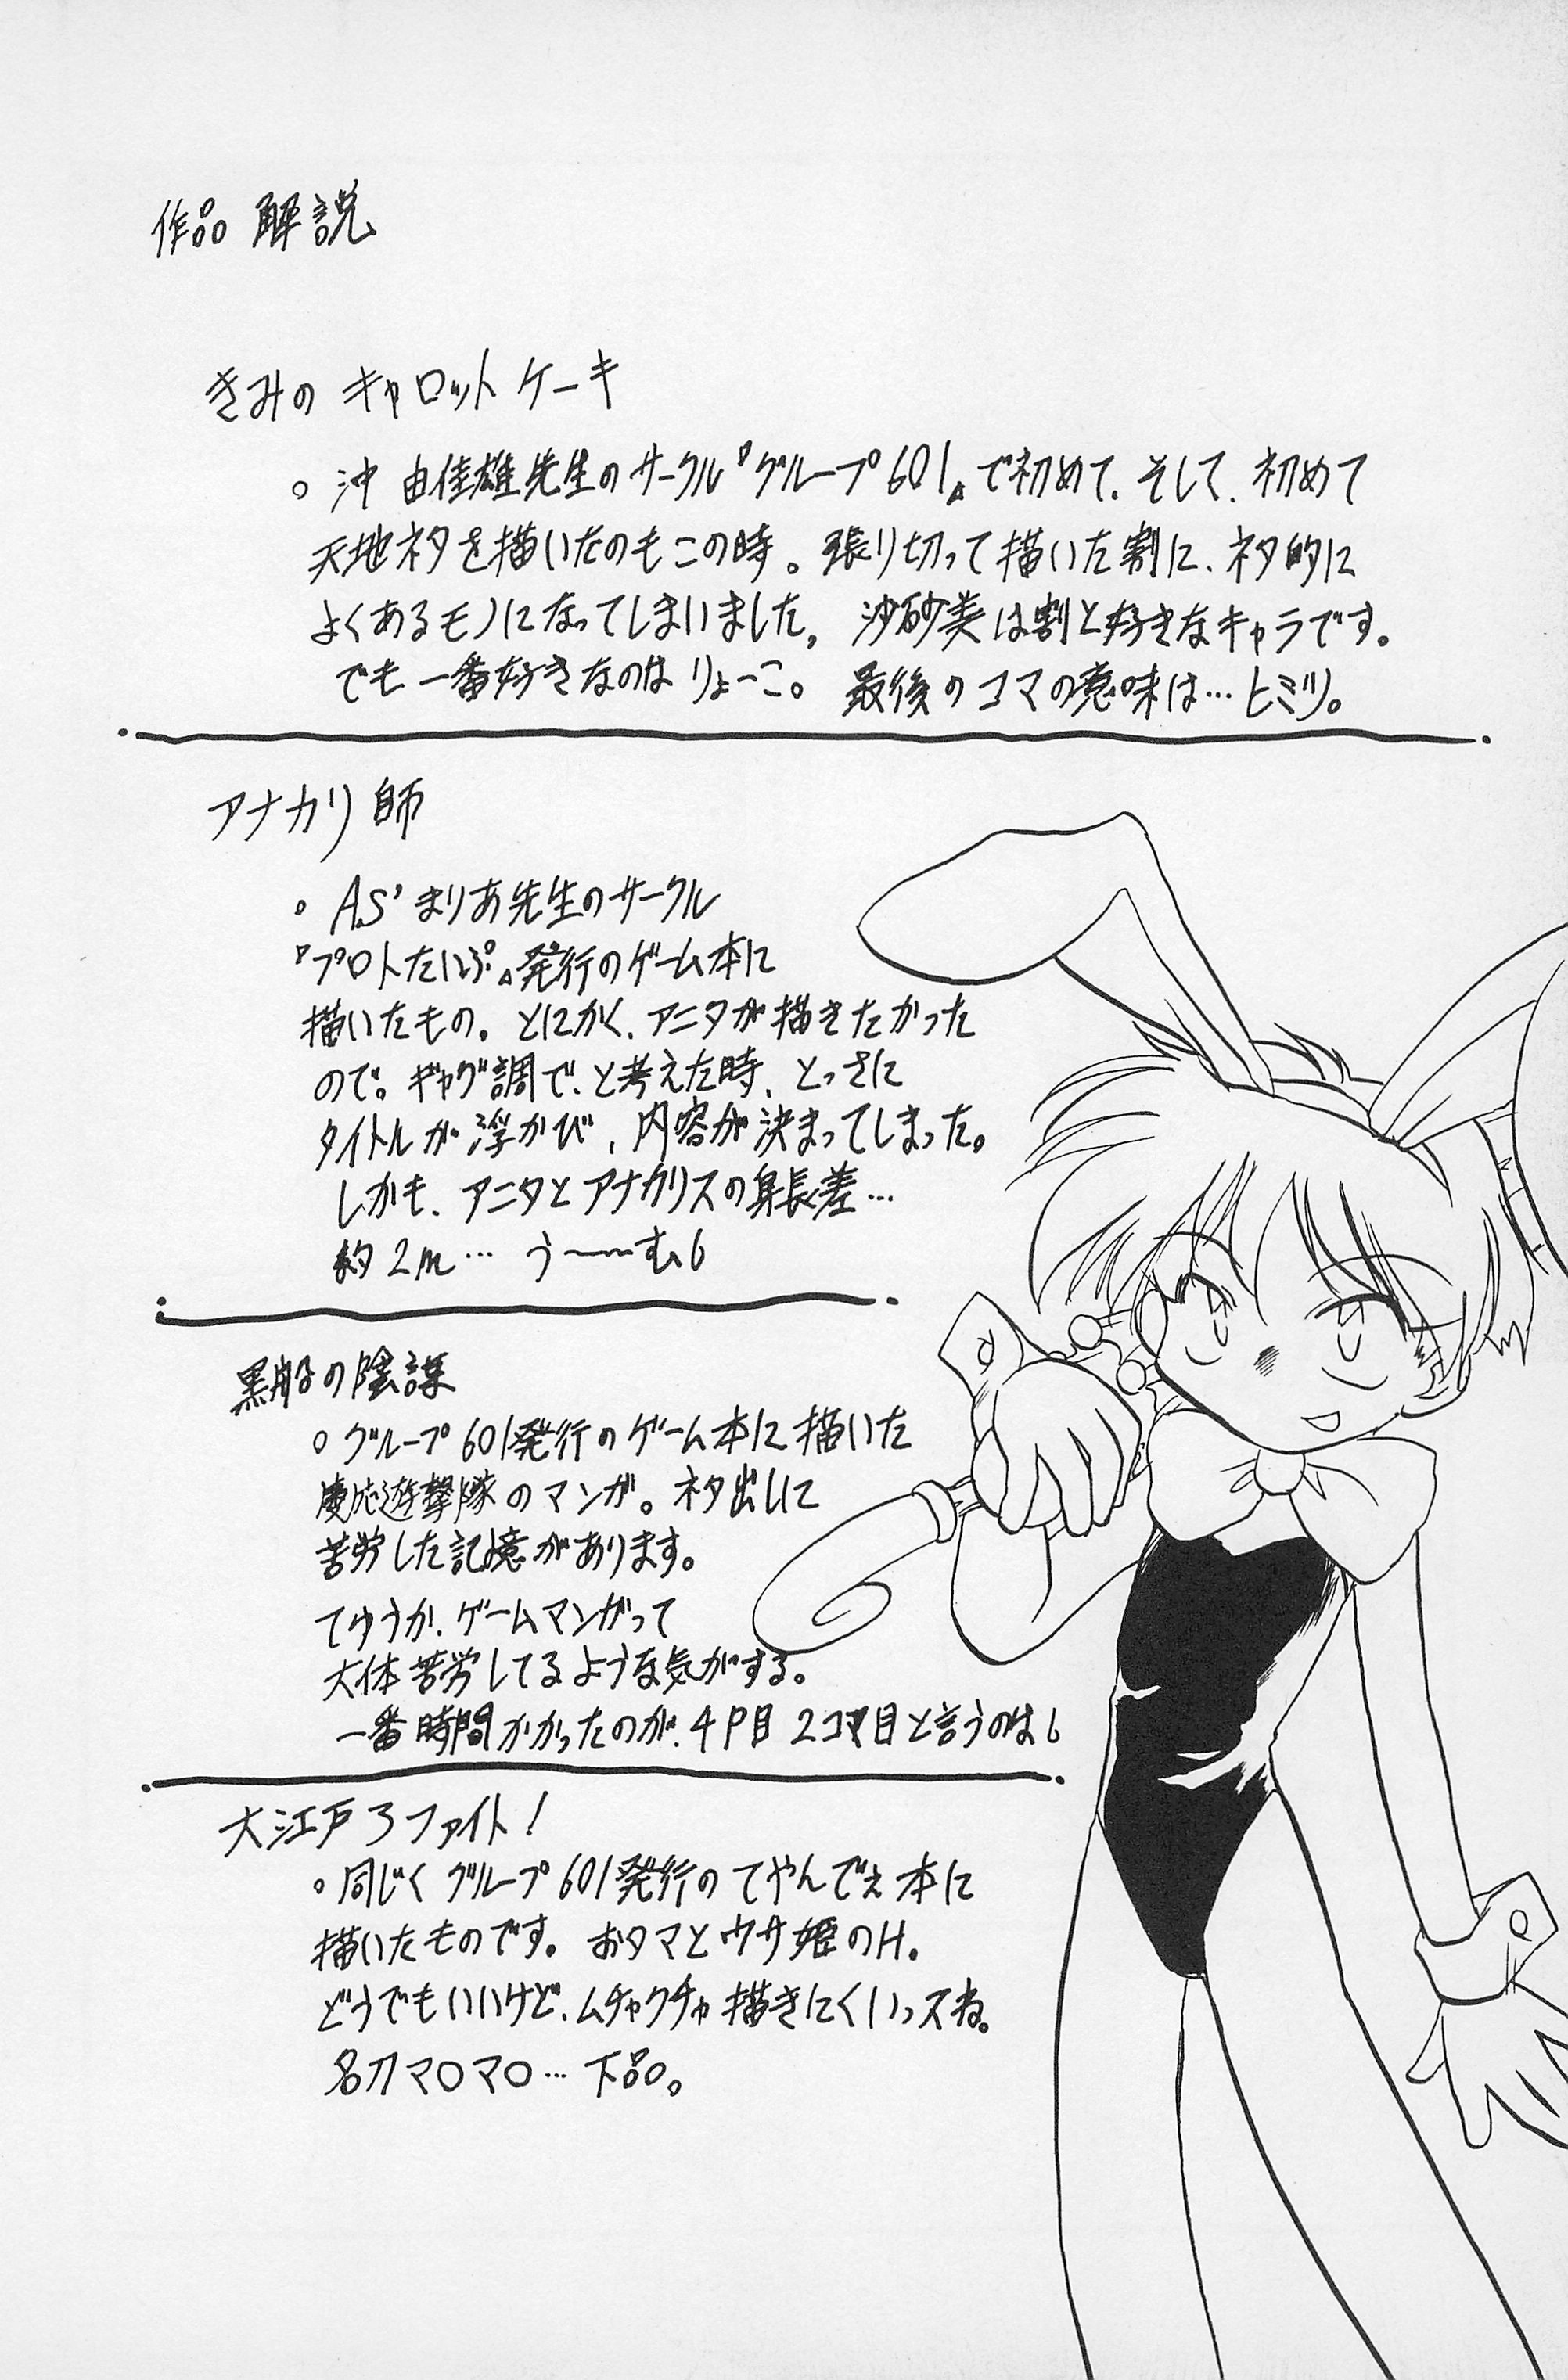 作品 解説
きみの キャロット ケーキ
○ 沖 由佳雄先生のサークル『グループ601』で初めて、そして、初めて
天地ネタを描いたのもこの時。張り切って描いた割に、ネタ的に
よくあるモノになってしまいました。沙砂美は割と好きなキャラです。
でも 一番好きなのは りょーこ。 最後のコマの意味は…ヒミツ。
アナカリ師
○ AS'まりあ先生のサークル
『プロトたいぷ』発行のゲーム本に
描いたもの。とにかく、アニタが描きたかった
ので。ギャグ調で、と考えた時、とっさに
タイトルが浮かび、内容が決まってしまった。
しかも、アニタとアナカリスの身長差…
約2m… う〜〜む
黒船の陰謀
○ グループ601発行のゲーム本に描いた
慶応遊撃隊のマンガ。ネタ出しに
苦労した記憶があります。
てゆうか、ゲームマンガって
大体苦労してるような気がする。
一番時間かかったのが、4P目 2コマ目と言うのは
大江戸ろファイト!
○ 同じく グループ601発行のてやんでぇ本に
描いたものです。おタマとウサ姫のH。
どうでもいいけど、ムチャクチャ描きにくいっスね。
名刀マ○マ○… 下品。